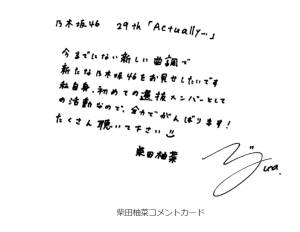 乃木坂46 29th「Actually...」
今までにない新しい曲調で
新たな乃木坂46をお見せしたいです
私自身、初めての選抜メンバーとして
の活動なので、全力でがんばります！
たくさん聴いて下さい
柴田柚菜
柴田柚菜コメントカード